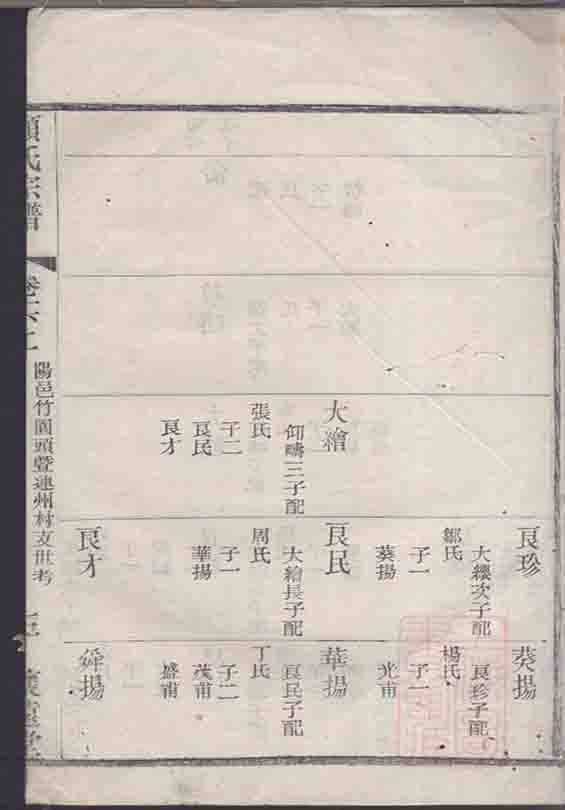 大繪
仰疇三子配
張氏
子二
良民
良才
良珍
大纓次子配
鄒氏
子一
葵揚
良民
大繪長子配
周氏
子一
華揚
良才
葵揚
良珍子配
楊氏
子一
光甫
華揚
良民子配
丁氏
子二
茂甫
盛甫
舜揚
項氏宗譜
卷
陽邑竹園頭暨連州村支世考